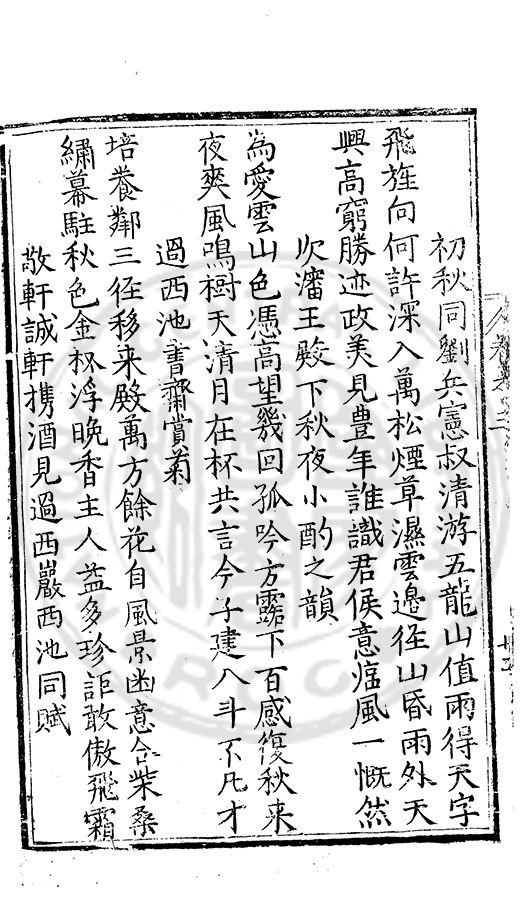 初秋同劉兵憲叔清游五龍山值雨得天字
飛旌向何許深入萬松煙草濕雲邊徑山昏雨外天
興高窮勝迹政美見豊年誰識君侯意瘟風一慨然
次瀋王殿下秋夜小酌之韻
為愛雲山色憑高望幾回孤吟方露下百感復秋来
夜爽風鳴樹天清月在杯共言今子建八斗不凡才
過西池書齋賞菊
培養鄰三徑移来殿萬方餘花自風景幽意合柴桑
繡幕駐秋色金杯浮晚香主人益多珍詎敢傲飛霜
敬軒誠軒携酒見過西巖西池同賦